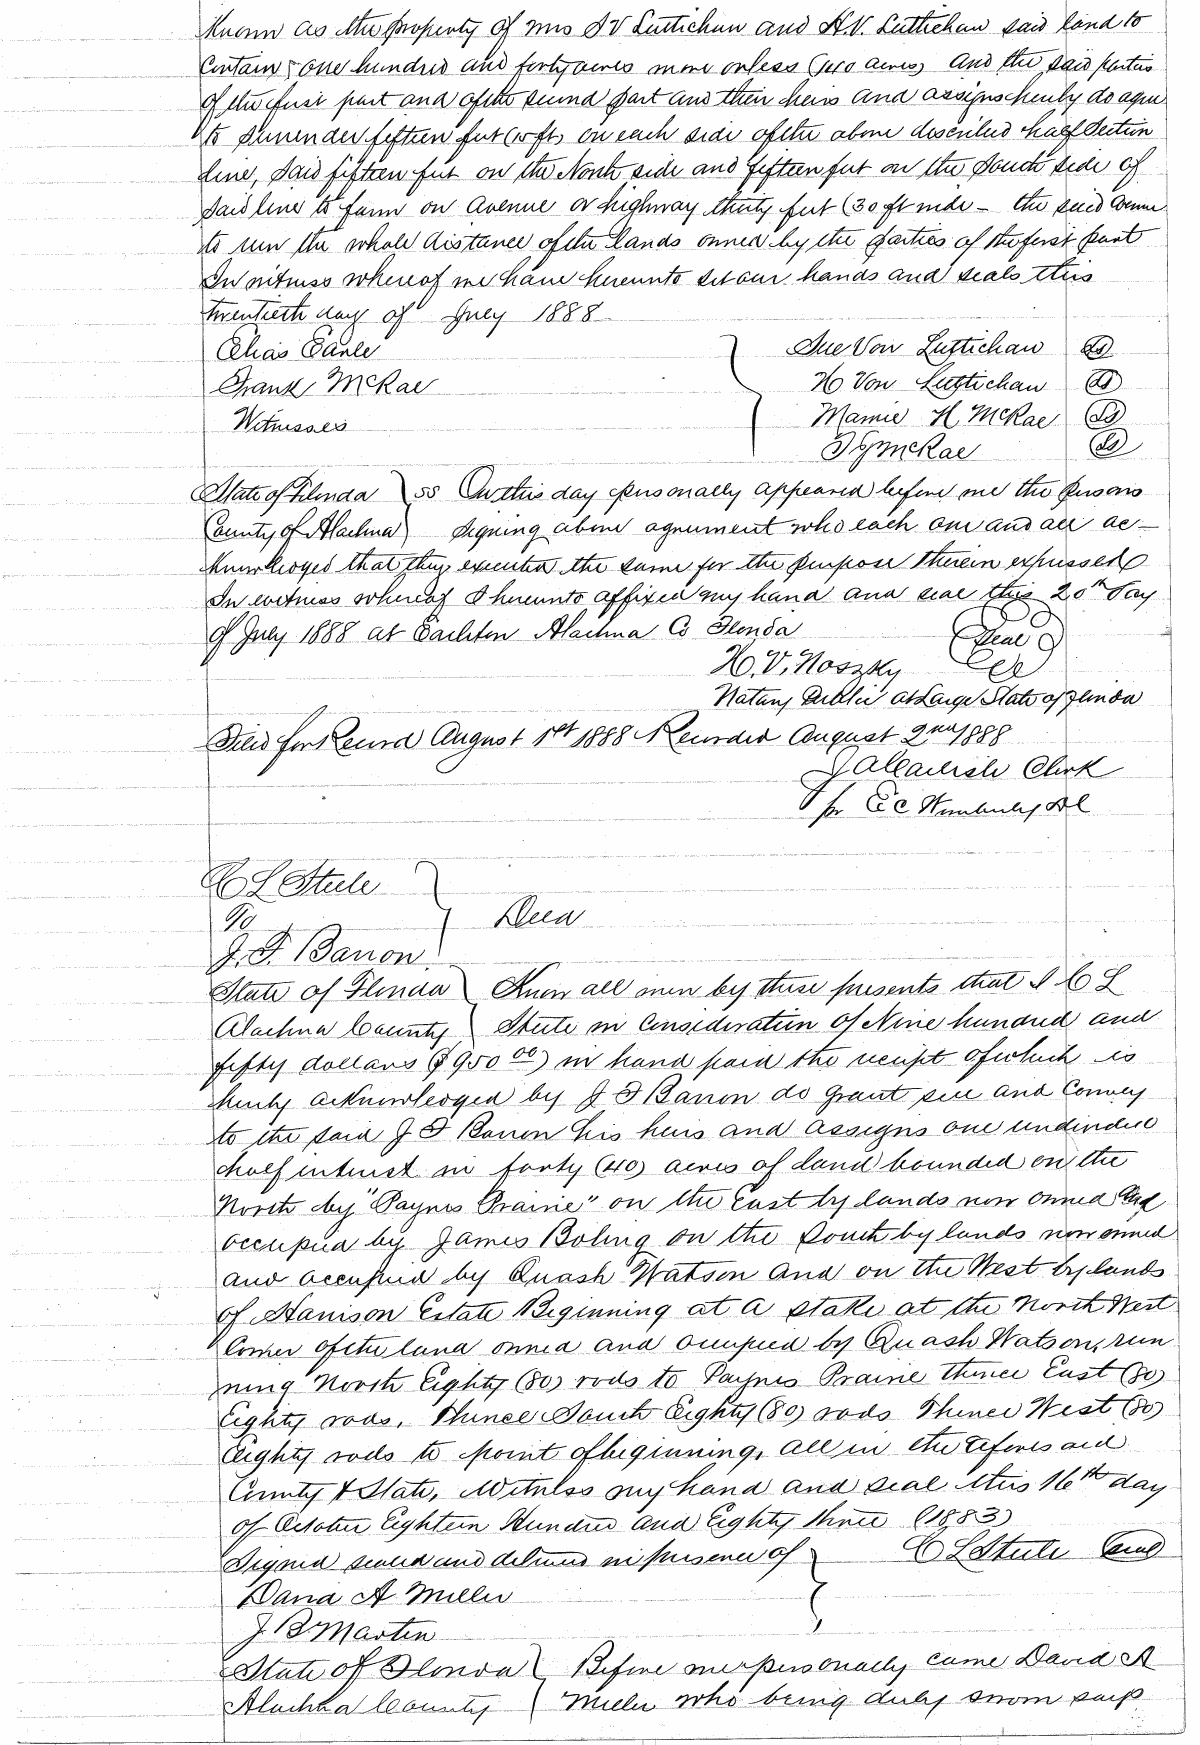 Known as the property of Mrs S V Luttichau and H.V. Luttichau said land to
Contain one hundred and forty acres more or less (140 acres) and the said parties
of the first part and of the second part and their heirs and assigns hereby do agree
to surrender fifteen feet (15 ft) on each side of the above described half Section
line, said fifteen feet on the North side and fifteen feet on the South side of
said line to form on Avenue or highway thirty feet (30 ft wide – the said Avenue
to run the whole distance of the lands owned by the parties of the first part
In witness whereof we have hereunto set our hands and seals this
twentieth day of July 1888
Elias Earle
Frank McRae
Witnesses
Sue Von Luttichau LS
H Von Luttichau LS
Mamie H McRae LS
McRae LS
State of Florida } SS On this day personally appeared before me the persons
County of Alachua } signing above agreement who each one and all ac-
knowledged that they executed the same for the purpose therein expressed
In witness whereof I hereunto affixed my hand and seal this 20th day
of July 1888 at Alachua Co Florida
Seal
H. V. Noszky
Notary Public at Large State of Florida
Filed for Record August 1st 1888 Recorded August 2nd 1888
Clerk
pr
C L Steele
To } Deed
J. F. Barron
State of Florida } Know all men by these presents that I C L
Alachua County } Steele in consideration of Nine hundred and
fifty dollars ($950 00) in hand paid the receipt of which is
hereby acknowledged by J F Barron do grant sell and Convey
to the said J F Barron his heirs and assigns one undivided
half interest in forty (40) acres of land bounded on the
North by "Paynes Prairie" on the East by lands now owned and
occupied by James Boling on the South by lands now owned
and occupied by Quash Watson and on the West by lands
of Harrison Estate Beginning at a stake at the North West
Corner of the land owned and occupied by Quash Watson, run
ning North Eighty (80) rods to Paynes Prairie thence East (80)
Eighty rods, Thence South Eighty (80) rods Thence West (80)
Eighty rods to point of beginning, all in the aforesaid
County & State, Witness my hand and seal this 16th day
of October Eighteen Hundred and Eighty three (1883)
Signed sealed and delivered in presence of } C L Steele Seal
David A Miller
J B Martin
State of Florida } Before me personally came David A
Alachua County } Miller who being duly sworn says